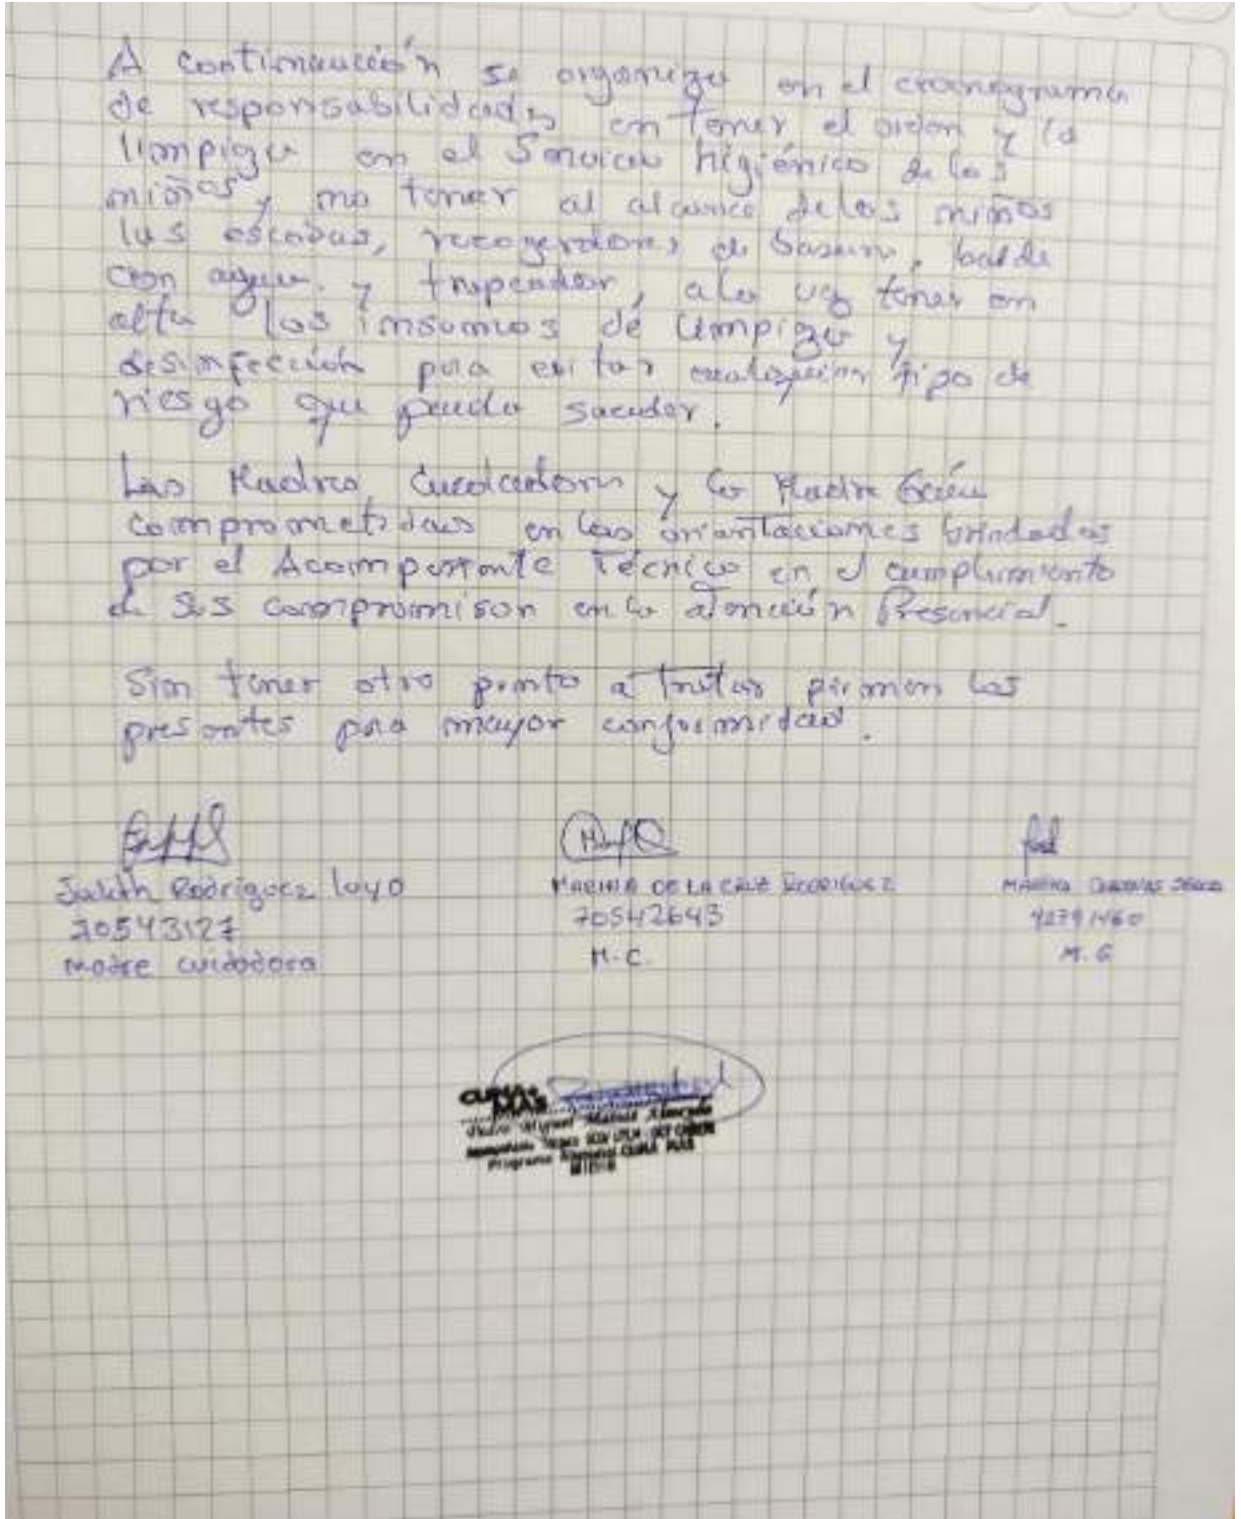 A continuación se organiza en el cronograma
de responsabilidades en tener el orden y la
limpieza en el Servicio higiénico de los
niños, no tener al alcance de los niños
las escobas, recogedores de basura, balde
con agua y trapeador, a la vez tener en
alto los insumos de limpieza y
desinfección para evitar cualquier tipo de
riesgo que pueda suceder.
Las Madres Cuidadoras y la Madre Guía
comprometidas en las orientaciones brindadas
por el Acompañante Técnico en el cumplimiento
de sus compromisos en la atención Presencial.
Sin tener otro punto a tratar firman los
presentes para mayor conformidad.
Judith Rodriguez Loyo
70543127
Madre cuidadora
MARINA DE LA CRUZ RODRIGUEZ
70542643
M.C.
MARINA CARDENAS
42791460
M.G
CUNA
MAS
Programa Nacional CUNA MAS
MIDIS